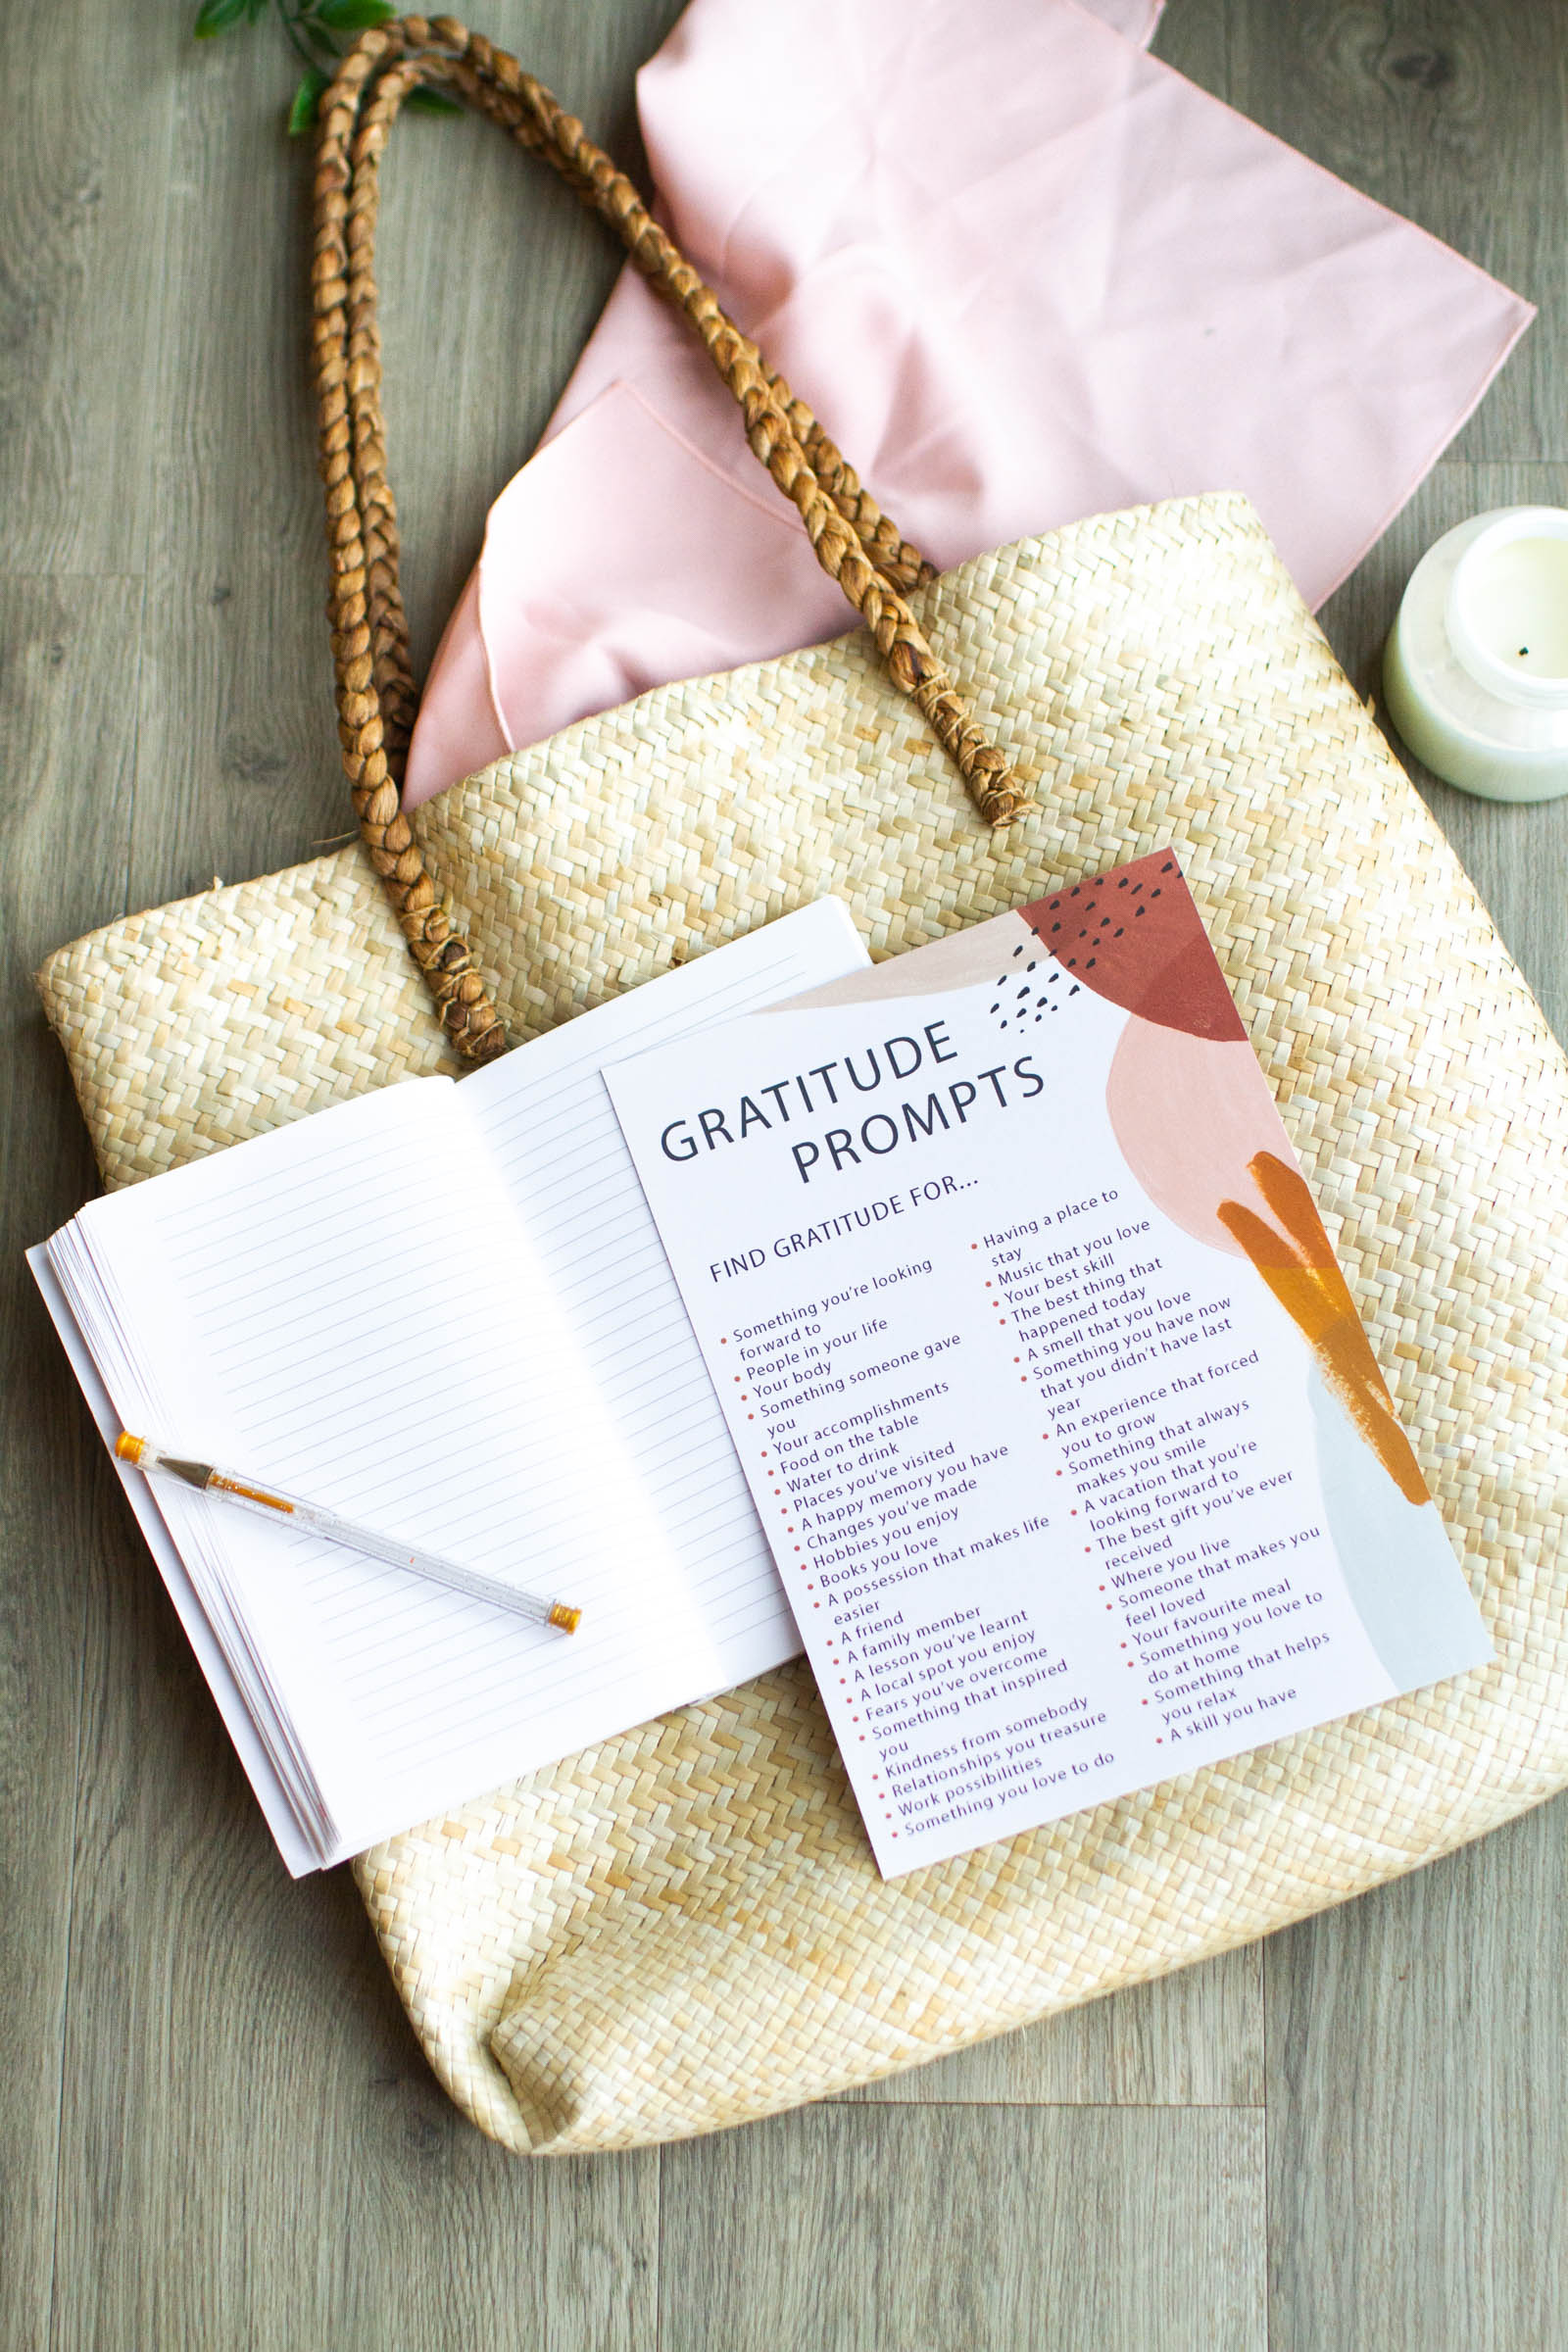 GRATITUDE
PROMPTS
FIND GRATITUDE FOR...
• Something you're looking
forward to
• People in your life
• Your body
• Something someone gave
you
• Your accomplishments
• Food on the table
• Water to drink
• Places you've visited
• A happy memory you have
• Changes you've made
• Hobbies you enjoy
• Books you love
• A possession that makes life
easier
• A friend
• A family member
• A lesson you've learnt
• A local spot you enjoy
• Fears you've overcome
• Something that inspired
you
• Kindness from somebody
• Relationships you treasure
• Work possibilities
• Something you love to do
• Having a place to
stay
• Music that you love
• Your best skill
• The best thing that
happened today
• A smell that you love
• Something you have now
that you didn't have last
year
• An experience that forced
you to grow
• Something that always
makes you smile
• A vacation that you're
looking forward to
• The best gift you've ever
received
• Where you live
• Someone that makes you
feel loved
• Your favourite meal
• Something you love to
do at home
• Something that helps
you relax
• A skill you have